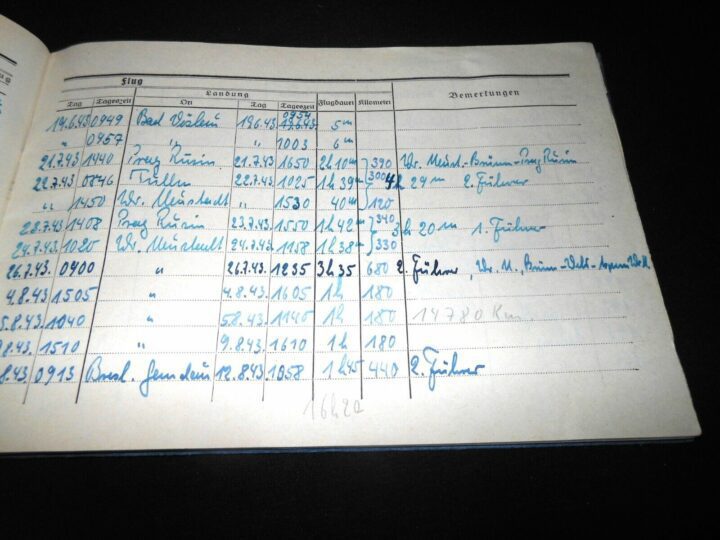 ug
Flug
Landung
Bemerkungen
Tag Tageszeit Ort Tag Tageszeit Flugdauer Kilometer
0954
19.6.43 0949 Bad Vöslau 19.6.43. 19.6.43. 5m
" 0957 " " 1003 6m
21.7.43 1440 Prag Rusin 21.7.43 1650 2h10m 390 Wr. Neust.-Brünn-Prag Rusin
22.7.43 0846 Tulln 22.7.43 1025 1h39m 300 4h 29m 2. Führer
" 1450 Wr. Neustadt " 1530 40m 120
1408 Prag Rusin 23.7.43 1550 1h42m 340 3h 20m 1. Führer
24.7.43 1020 Wr. Neustadt 24.7.43 1158 1h38m 330
26.7.43. 0900 " 26.7.43. 1235 3h35 680 2. Führer, Wr. N., Brünn-
4.8.43 1505 " 4.8.43 1605 1h 180
5.8.43. 1040 " 5.8.43 1140 1h 180 14780 Km.
9.8.43. 1510 " 9.8.43 1610 1h 180
8.43. 0913 Bresl. Gandau 12.8.43 1058 1h45 440 2. Führer
16h20